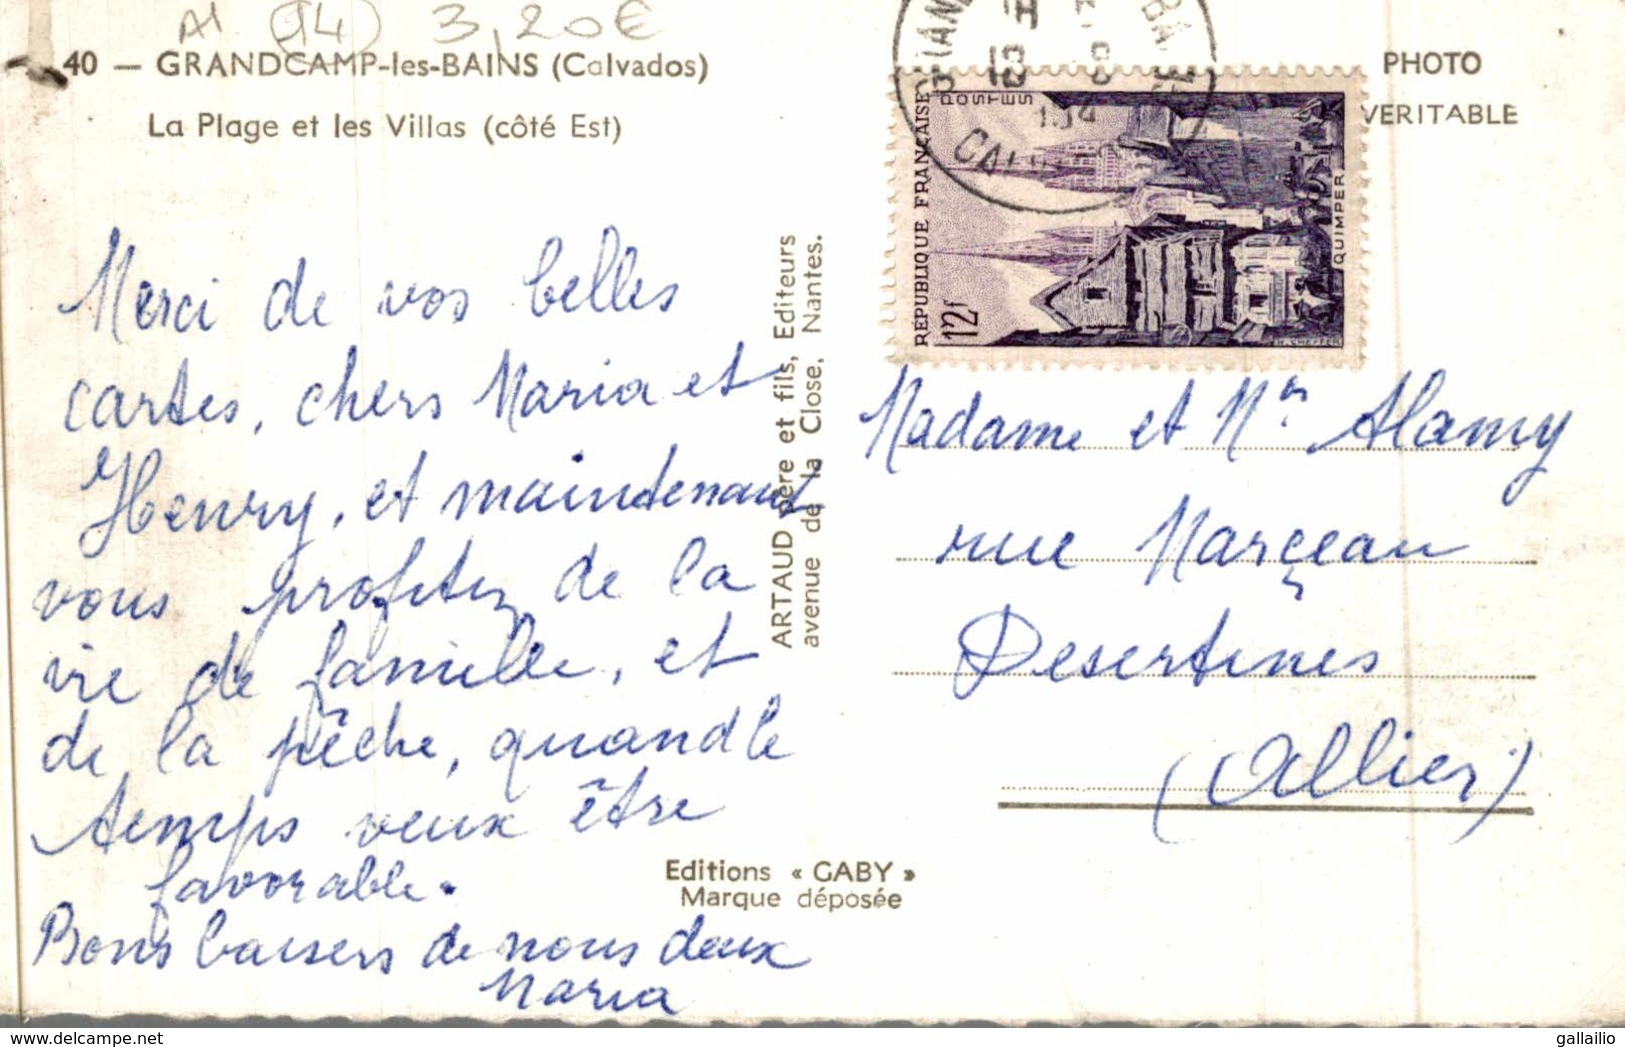 AI (14) 3,20€
40 — GRANDCAMP-les-BAINS (Calvados)
La Plage et les Villas (côté Est)
Merci de vos belles
cartes, chers Maria et
Henry, et maintenant
vous profitez de la
vie de famille, et
de la pêche, quand le
temps veux être
favorable.
Bons baisers de nous deux
Maria
ARTAUD père et fils, Editeurs
avenue de la Close. Nantes.
Editions « GABY »
Marque déposée
PHOTO
VERITABLE
REPUBLIQUE FRANÇAISE
POSTES
12f
QUIMPER
H. CHEFFER
Madame et Mr Alamy
rue Marçeau
Desertines
(Allier)
delcampe.net
gallailio